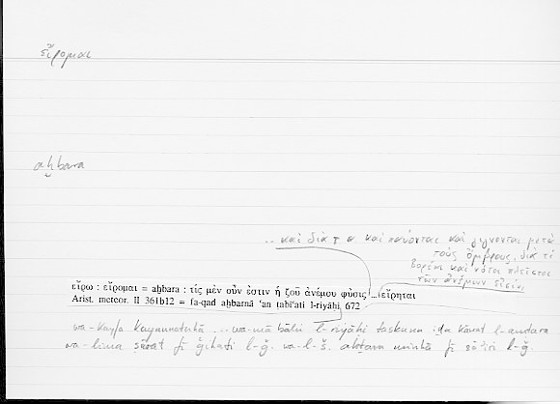 εἴρομαι
aḫbara
..καὶ διὰ τ α. καὶ παύονται καὶ γίγνονται μετὰ
τοὺς ὄμβρους, διὰ τί
βορέαι καὶ νότοι πλεῖστοι
τῶν ἀνέμων εἰσίν,
εἴρω : εἴρομαι = aḫbara : τίς μὲν οὖν ἐστιν ἡ ζοῦ ἀνέμου φύσις ... εἴρηται
Arist. meteor. II 361b12 = fa-qad aḫbarnā ʿan ṭabīʿati l-riyāḥi 672
wa-kayfa kaynūnatuhā ... wa-mā bālu l-riyāḥi taskunu
wa-lima ṣārat fī ǧihati l-ǧ. wa-l-š. akṯara minhā fī l-ǧ.